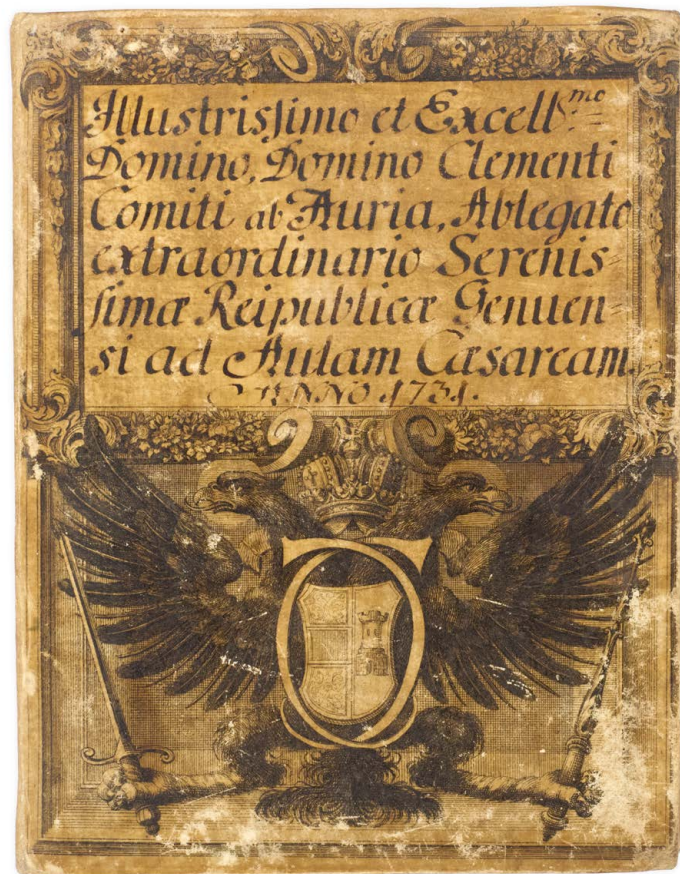 Illustrissimo et Excell.mo
Domino, Domino Clementi
Comiti ab Auria, Ablegato
extraordinario Serenis=
simæ Reipublicæ Genuen=
si ad Aulam Cæsaream.
ANNO 1731.